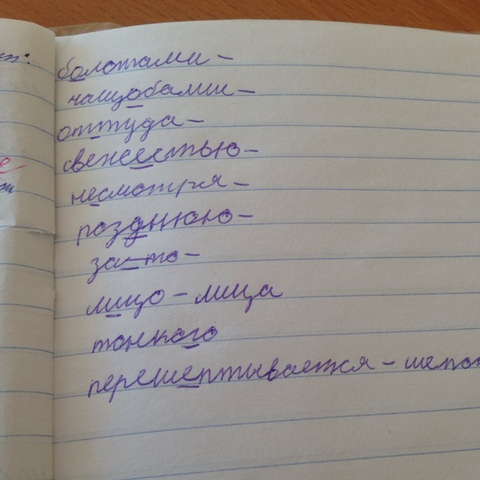 болотами -
чащобами -
оттуда -
свежестью -
несмотря -
позднюю -
за-то -
лицо - лица
тонкого
перешептывается - шепот